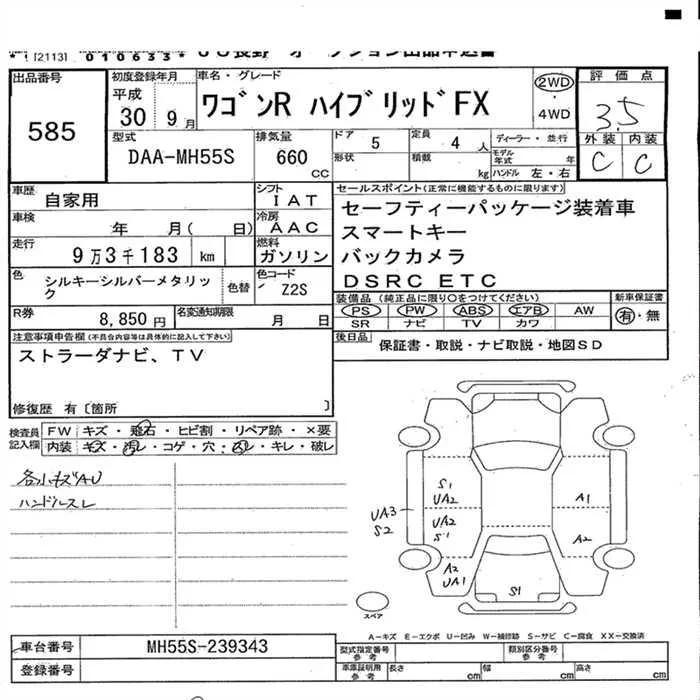 *![2113] 010633*
出品番号
585
初度登録年月
平成
30 9月
車名・グレード
ワゴンR ハイブリッドFX
2WD
・
4WD
評価点
3.5
外装 内装
C C
型式
DAA-MH55S
排気量
660
CC
ドア
5
形状
定員
4 人
積載
kg
ディーラー・並行
モデル年式 年
ハンドル 左・右
車歴
自家用
シフト
IAT
車検
年 月( 日)
冷房
AAC
走行
9万3千183 km
燃料
ガソリン
色
シルキーシルバーメタリック
色替
色コード
Z2S
R券
8,850円
名変通知期限
月 日
セールスポイント(正常に機能するものに限ります)
セーフティーパッケージ装着車
スマートキー
バックカメラ
DSRC ETC
装備品 (純正品に限り○をつけてください)
PS PW ABS エアB AW
SR ナビ TV カワ
新車保証書
有・無
後日品
保証書・取説・ナビ取説・地図SD
注意事項申告欄(不具合内容等は具体的に記入して下さい)
ストラーダナビ、TV
修復歴 有〔箇所 〕
検査員
記入欄
FW キズ・飛石・ヒビ割・リペア跡・×要
内装 キズ・汚レ・コゲ・穴・凹・キレ・破レ
各小キズAU
ハンドルスレ
S1
UA2
UA3
S2
UA2
S1
A2
UA1
A1
A2
S1
スペア
A-キズ E-エクボ U-凹み W-補修跡 S-サビ C-腐食 XX-交換済
車台番号
MH55S-239343
登録番号
型式指定番号
参考
類別区分番号
参考
車庫証明用
参考
長さ cm
幅 cm
高さ cm